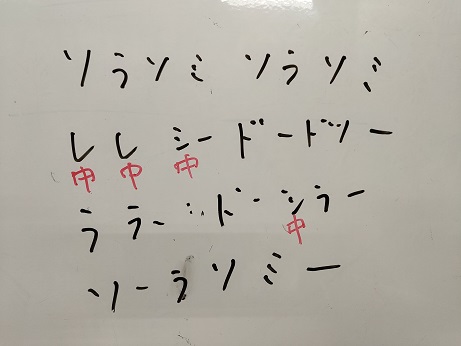 ソラソミ ソラソミ
レレ シードードソー
中 中 中
ララー ドーシラー
中
ソーラソミー